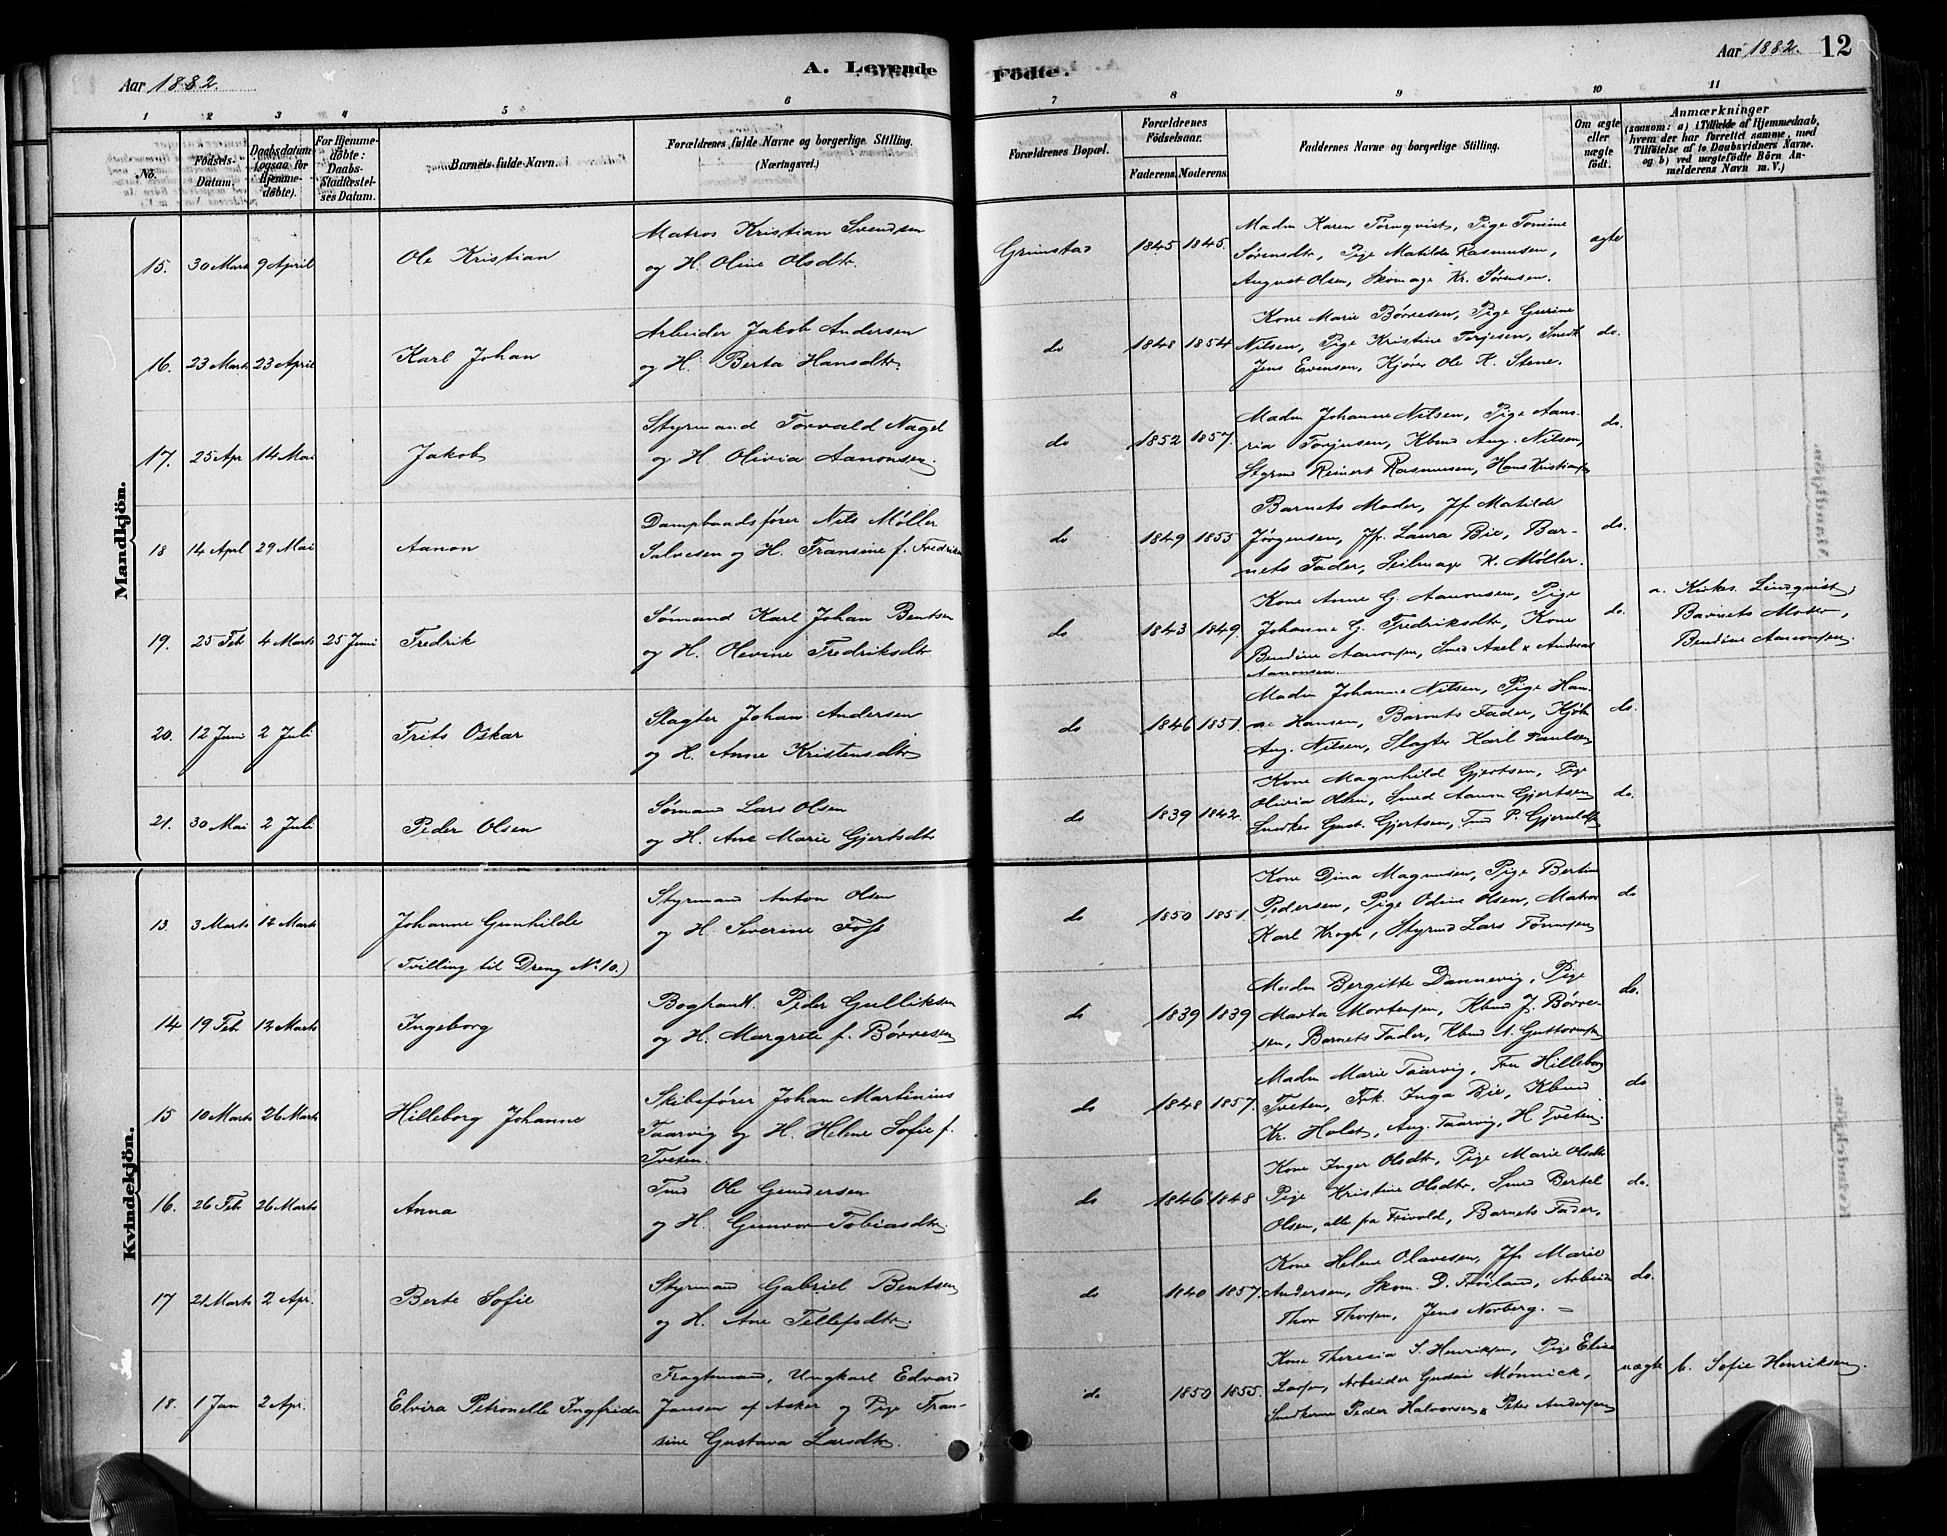 Aar 1882.
A. Levende Födte.
Aar 1882. 12
1 2 3 4 5 6 7 8 9 10 11
No.
Födsels-Datum.
Daabsdatum (ogsaa for Hjemme-döbte).
For Hjemme-döbte: Daabs-Stadfæstel-ses Datum.
Barnets fulde Navn.
Forældrenes fulde Navne og borgerlige Stilling. (Næringsvei.)
Forældrenes Bopæl.
Forældrenes Födselsaar.
Faderens. Moderens.
Faddernes Navne og borgerlige Stilling.
Om ægte eller uægte födt.
Anmærkninger
(saasom: a) i Tilfælde af Hjemmedaab,
hvem der har forrettet samme, med
Tilföielse af to Daabsvidners Navne.
og b) ved uægtefödte Börn An-
melderens Navn m. V.)
Mandkjön.
Matros Kristian Svendsen
15. 30 Marts 9 April Ole Kristian og H. Oline Olsdtr
Grimstad 1845 1845. ægte
Madm Karen Törnqvist, Pige Tomine
Sörensdtr, Pige Matilde Rasmussen,
August Olsen, Skomager Kr. Sörensen.
Arbeider Jakob Andersen
16. 23 Marts 23 April Karl Johan og H. Berta Hansdtr.
do 1848 1854 do.
Kone Marie Börresen, Pige Gurine
Nilsen, Pige Kristine Terjesen, Smedk
Jens Evensen, Kjörer Ole K. Stene.
Styrmand Torvald Nagel
17. 25 Apr 14 Mai Jakob og H. Olivia Aanonsen.
do 1852 1857. do.
Madm Johanne Nilsen, Pige Aans-
ria Torjusen, Kbmd Aug. Nilsen,
Styrmd Reinert Rasmussen, Hans Kristiansen
Dampbaadsförer Nils Möller
18 14 Apl 29 Mai Aanon Salvesen og H. Fransine f. Fredriksen
do 1849 1853 do.
Barnets Moder, Jf. Matilde
Jörgensen, Jfr. Laura Bie, Bar-
nets Fader, Seilmager K. Möller.
Sömand Karl Johan Bentsen
19. 25 Feb 4 Marts 25 Juni Fredrik og H. Olevine Fredriksdtr.
do 1843 1849. do.
Kone Anne G. Aanonsen, Pige
Johanne G. Fredriksdtr, Kone
Bendine Aanonsen, Smed Axel & Andreas
Aanonsen.
a. Kirkes. Lindqvist,
Barnets Moder,
Bendine Aanonsen.
Slagter Johan Andersen
20. 12 Juni 2 Juli Frits Oskar og H. Anne Kristensdtr
do 1846 1851. do.
Madm Johanne Nilsen, Pige Han-
ne Hansen, Barnets Fader, Kjöbm
Aug. Nilsen, Slagter Karl Paulsen
Sömand Lars Olsen
21. 30 Mai 2 Juli Peder Olsen og H. Ane Marie Gjertsdtr
do 1839 1842. do.
Kone Magnhild Gjertsen, Pige
Olivia Olsen, Smed Aanon Gjertsen
Snedker Gust. Gjertsen, Tmd P. Gjeruldsen
Kvindekjön.
Styrmand Anton Olsen
13. 3 Marts 12 Marts Johanne Gunhilde og H. Severine Foss
(Tvilling til Dreng No 10.)
do 1850 1851. do
Kone Dina Magnusen, Pige Bertine
Pedersen, Pige Odine Olsen, Matros
Karl Krogh, Styrmd Lars Tönnesen
Boghandl. Peder Gulliksen
14 19 Feb 12 Marts Ingeborg og H. Margrete f. Börresen
do 1839 1839 do.
Madm Bergitte Dannevig, Pige
Marta Mortensen, Kbmd J. Börre-
sen, Barnets Fader, Kbmd A. Guttormsen
Skibsförer Johan Martinius
15 10 Marts 26 Marts Hilleborg Johanne Taarvig og H. Helene Sofie f.
Tveten.
do 1848 1857. do
Madm Marie Taarvig, Fru Hilleborg
Tveten, Frk. Inga Bie, Kbmd
Kr. Holst, Aug. Taarvig, H. Tveten.
Tmd Ole Gundersen
16. 26 Feb 26 Marts Anna og H. Gunvor Tobiasdtr.
do 1846 1848 do.
Kone Inger Olsdtr, Pige Marie Olsdtr
Pige Kristine Olsdtr, Smed Bertel
Olsen, alle fra Frivold, Barnets Fader.
Styrmand Gabriel Bentsen
17 21 Marts 2 Apr. Berte Sofie og H. Ane Tellefsdtr.
do 1840 1857. do.
Kone Helene Olavesen, Jfr Marie
Andersen, Skom. D. Fröiland, Arbeider
Thor Thorsen, Jens Norberg. –
Fragtemand, Ungkarl Edvard
18. 1 Jan 2 Apr. Elvira Petronelle Ingfrida Jansen af Asker og Pige Fran-
sine Gustava Larsdtr.
do 1850 1855. uægte
Kone Theresia S. Henriksen, Pige Elise
Larsen, Arbeider Gustav Mönnick,
Snedkerne Peder Halvorsen & Peter Andersen
b. Sofie Henriksen.